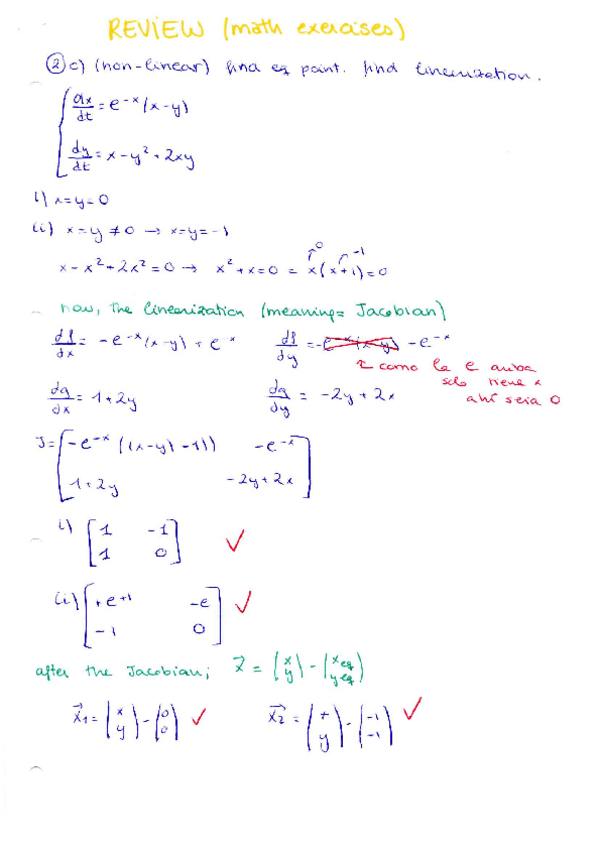 REVIEW (math exercises)
② c) (non-linear) find eq point. find linearization.
dx/dt = e^-x (x-y)
dy/dt = x - y² + 2xy
i) x=y=0
ii) x=y ≠ 0 → x=y=-1
x - x² + 2x² = 0 → x² + x = 0 = x(x+1) = 0
0 -1
now, the linearization (meaning= Jacobian)
df/dx = -e^-x (x-y) + e^-x df/dy = -e^-x (x-y) -e^-x
como la e arriba
solo tiene x
ahí sería 0
dg/dx = 1+2y dg/dy = -2y + 2x
J = [ -e^-x ((x-y) -1)) -e^-x
1+2y -2y+2x ]
i) [ 1 -1
1 0 ] ✓
ii) [ +e^+1 -e
-1 0 ] ✓
after the Jacobian; x⃗ = (x y) - (xeq yeq)
x⃗1 = (x y) - (0 0) ✓ x⃗2 = (x y) - (-1 -1) ✓